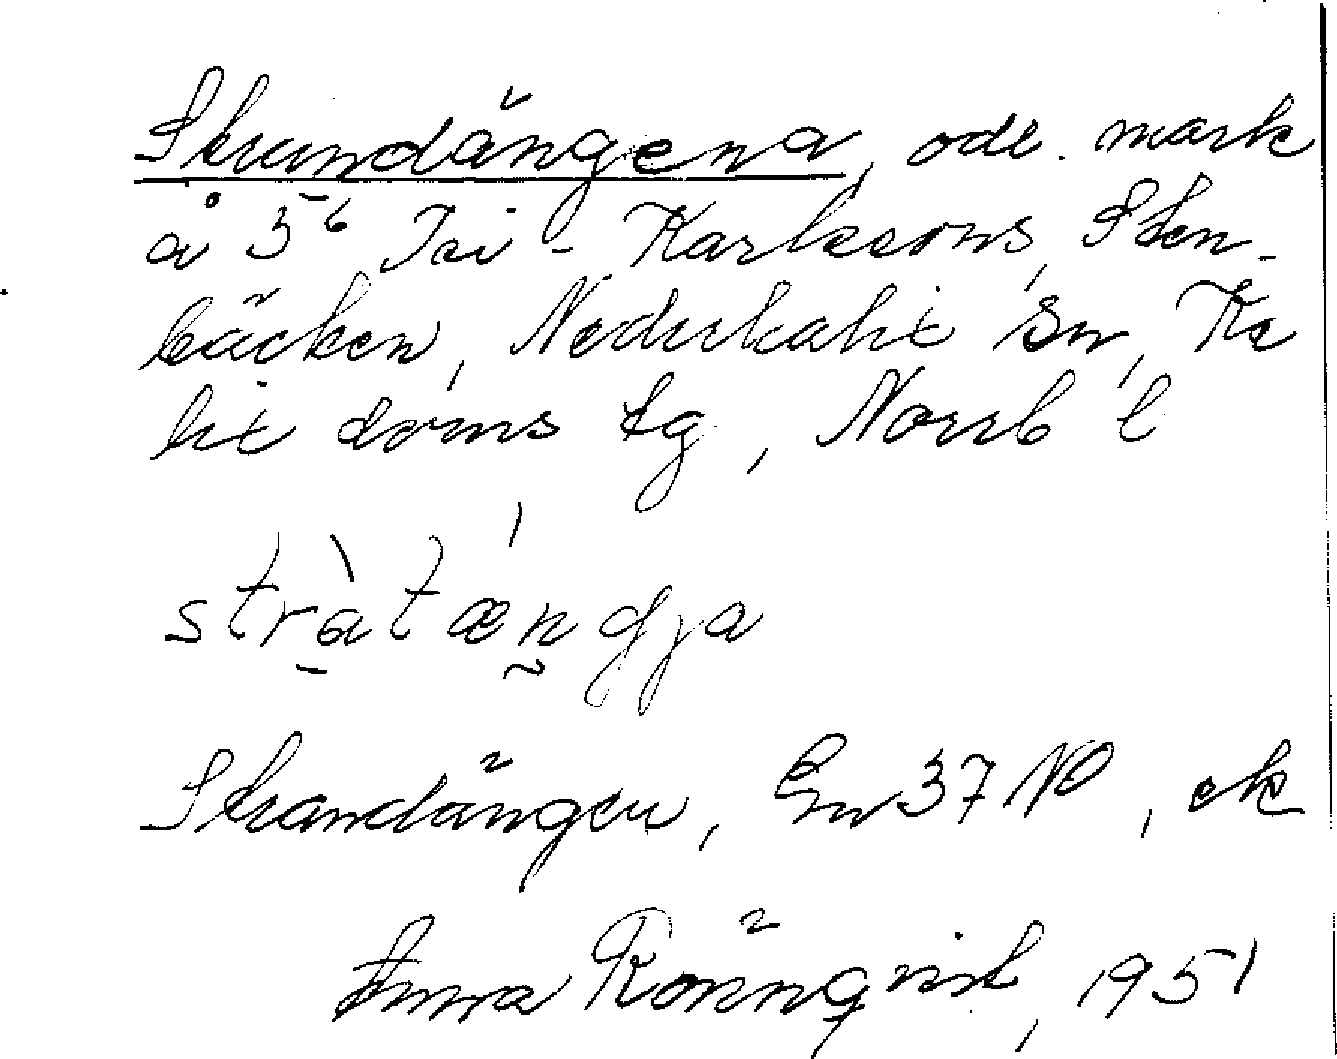 Strandängena, odl. mark
å 5⁶ Isi-Karlssons, Sten-
bäcken, Nederkalix sn, Ka
lix doms tg, Norrb l
stràtǽŋgja
Strandängen, En 37 NO, ek
Anna Rönnqvist, 1951